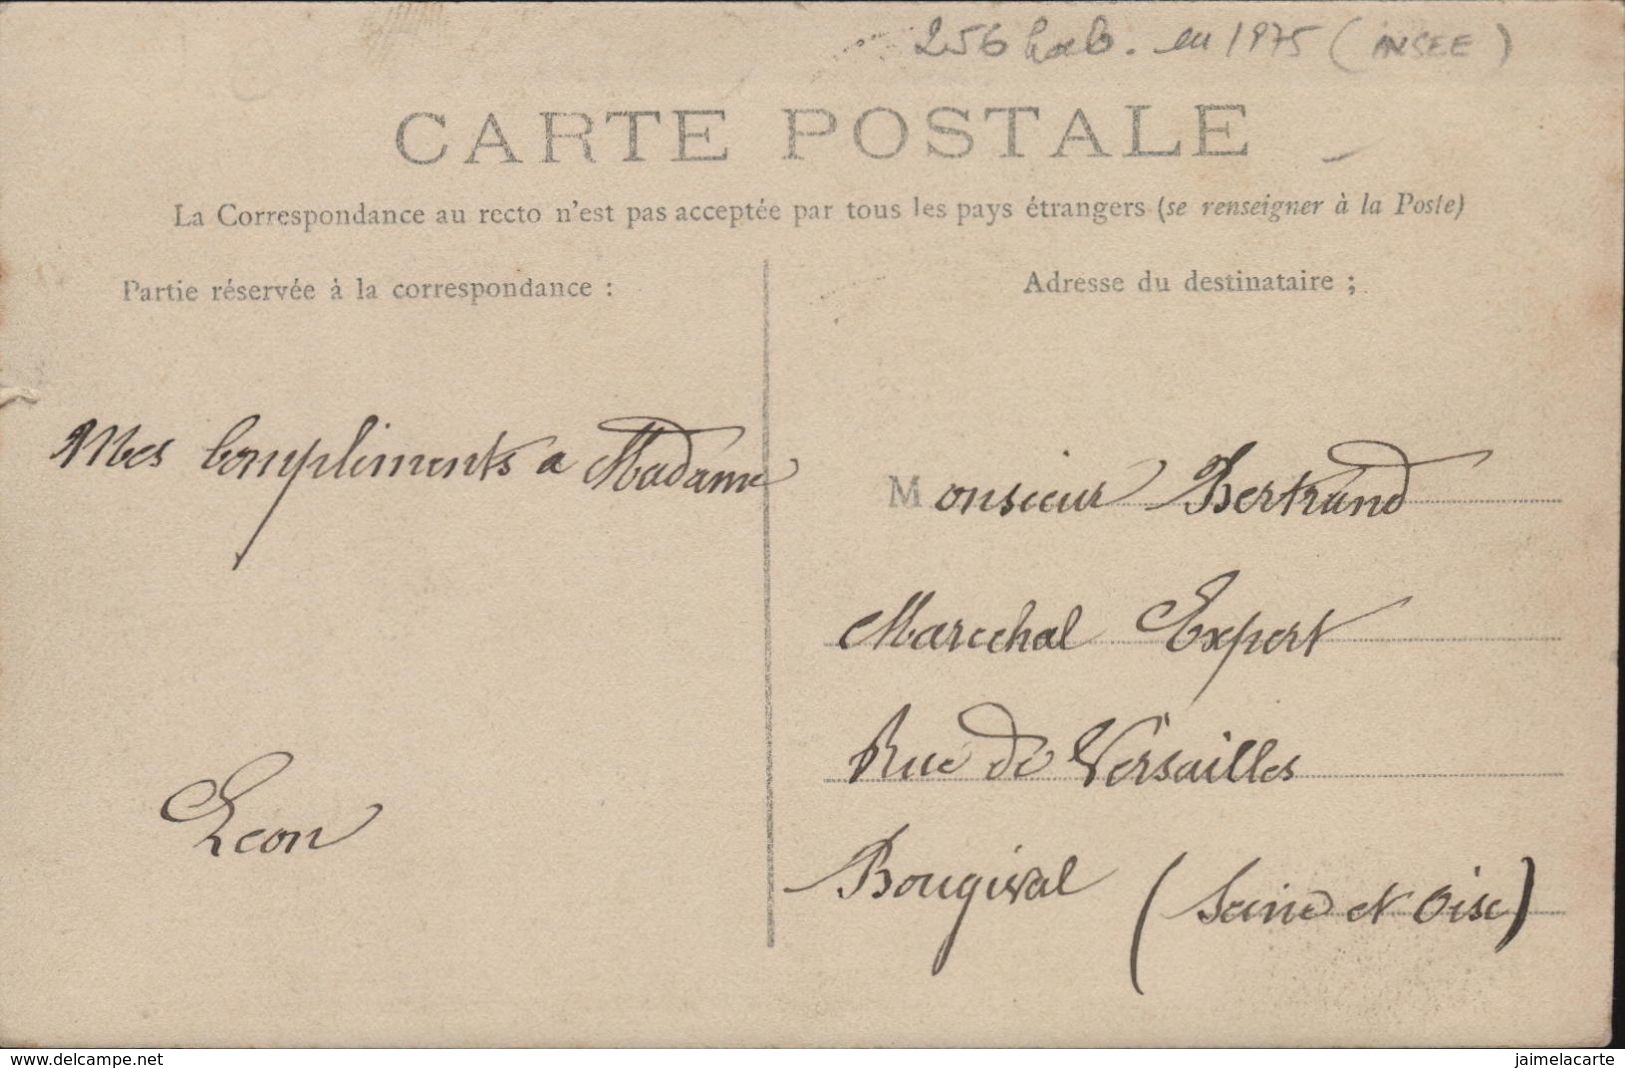 256 hab. en 1975 (INSEE)
CARTE POSTALE
La Correspondance au recto n'est pas acceptée par tous les pays étrangers (se renseigner à la Poste)
Partie réservée à la correspondance :
Mes Compliments a Madame
Leon
Adresse du destinataire ;
Monsieur Bertrand
Marechal Expert
Rue de Versailles
Bougival (Seine et Oise)
www.delcampe.net
jaimelacarte